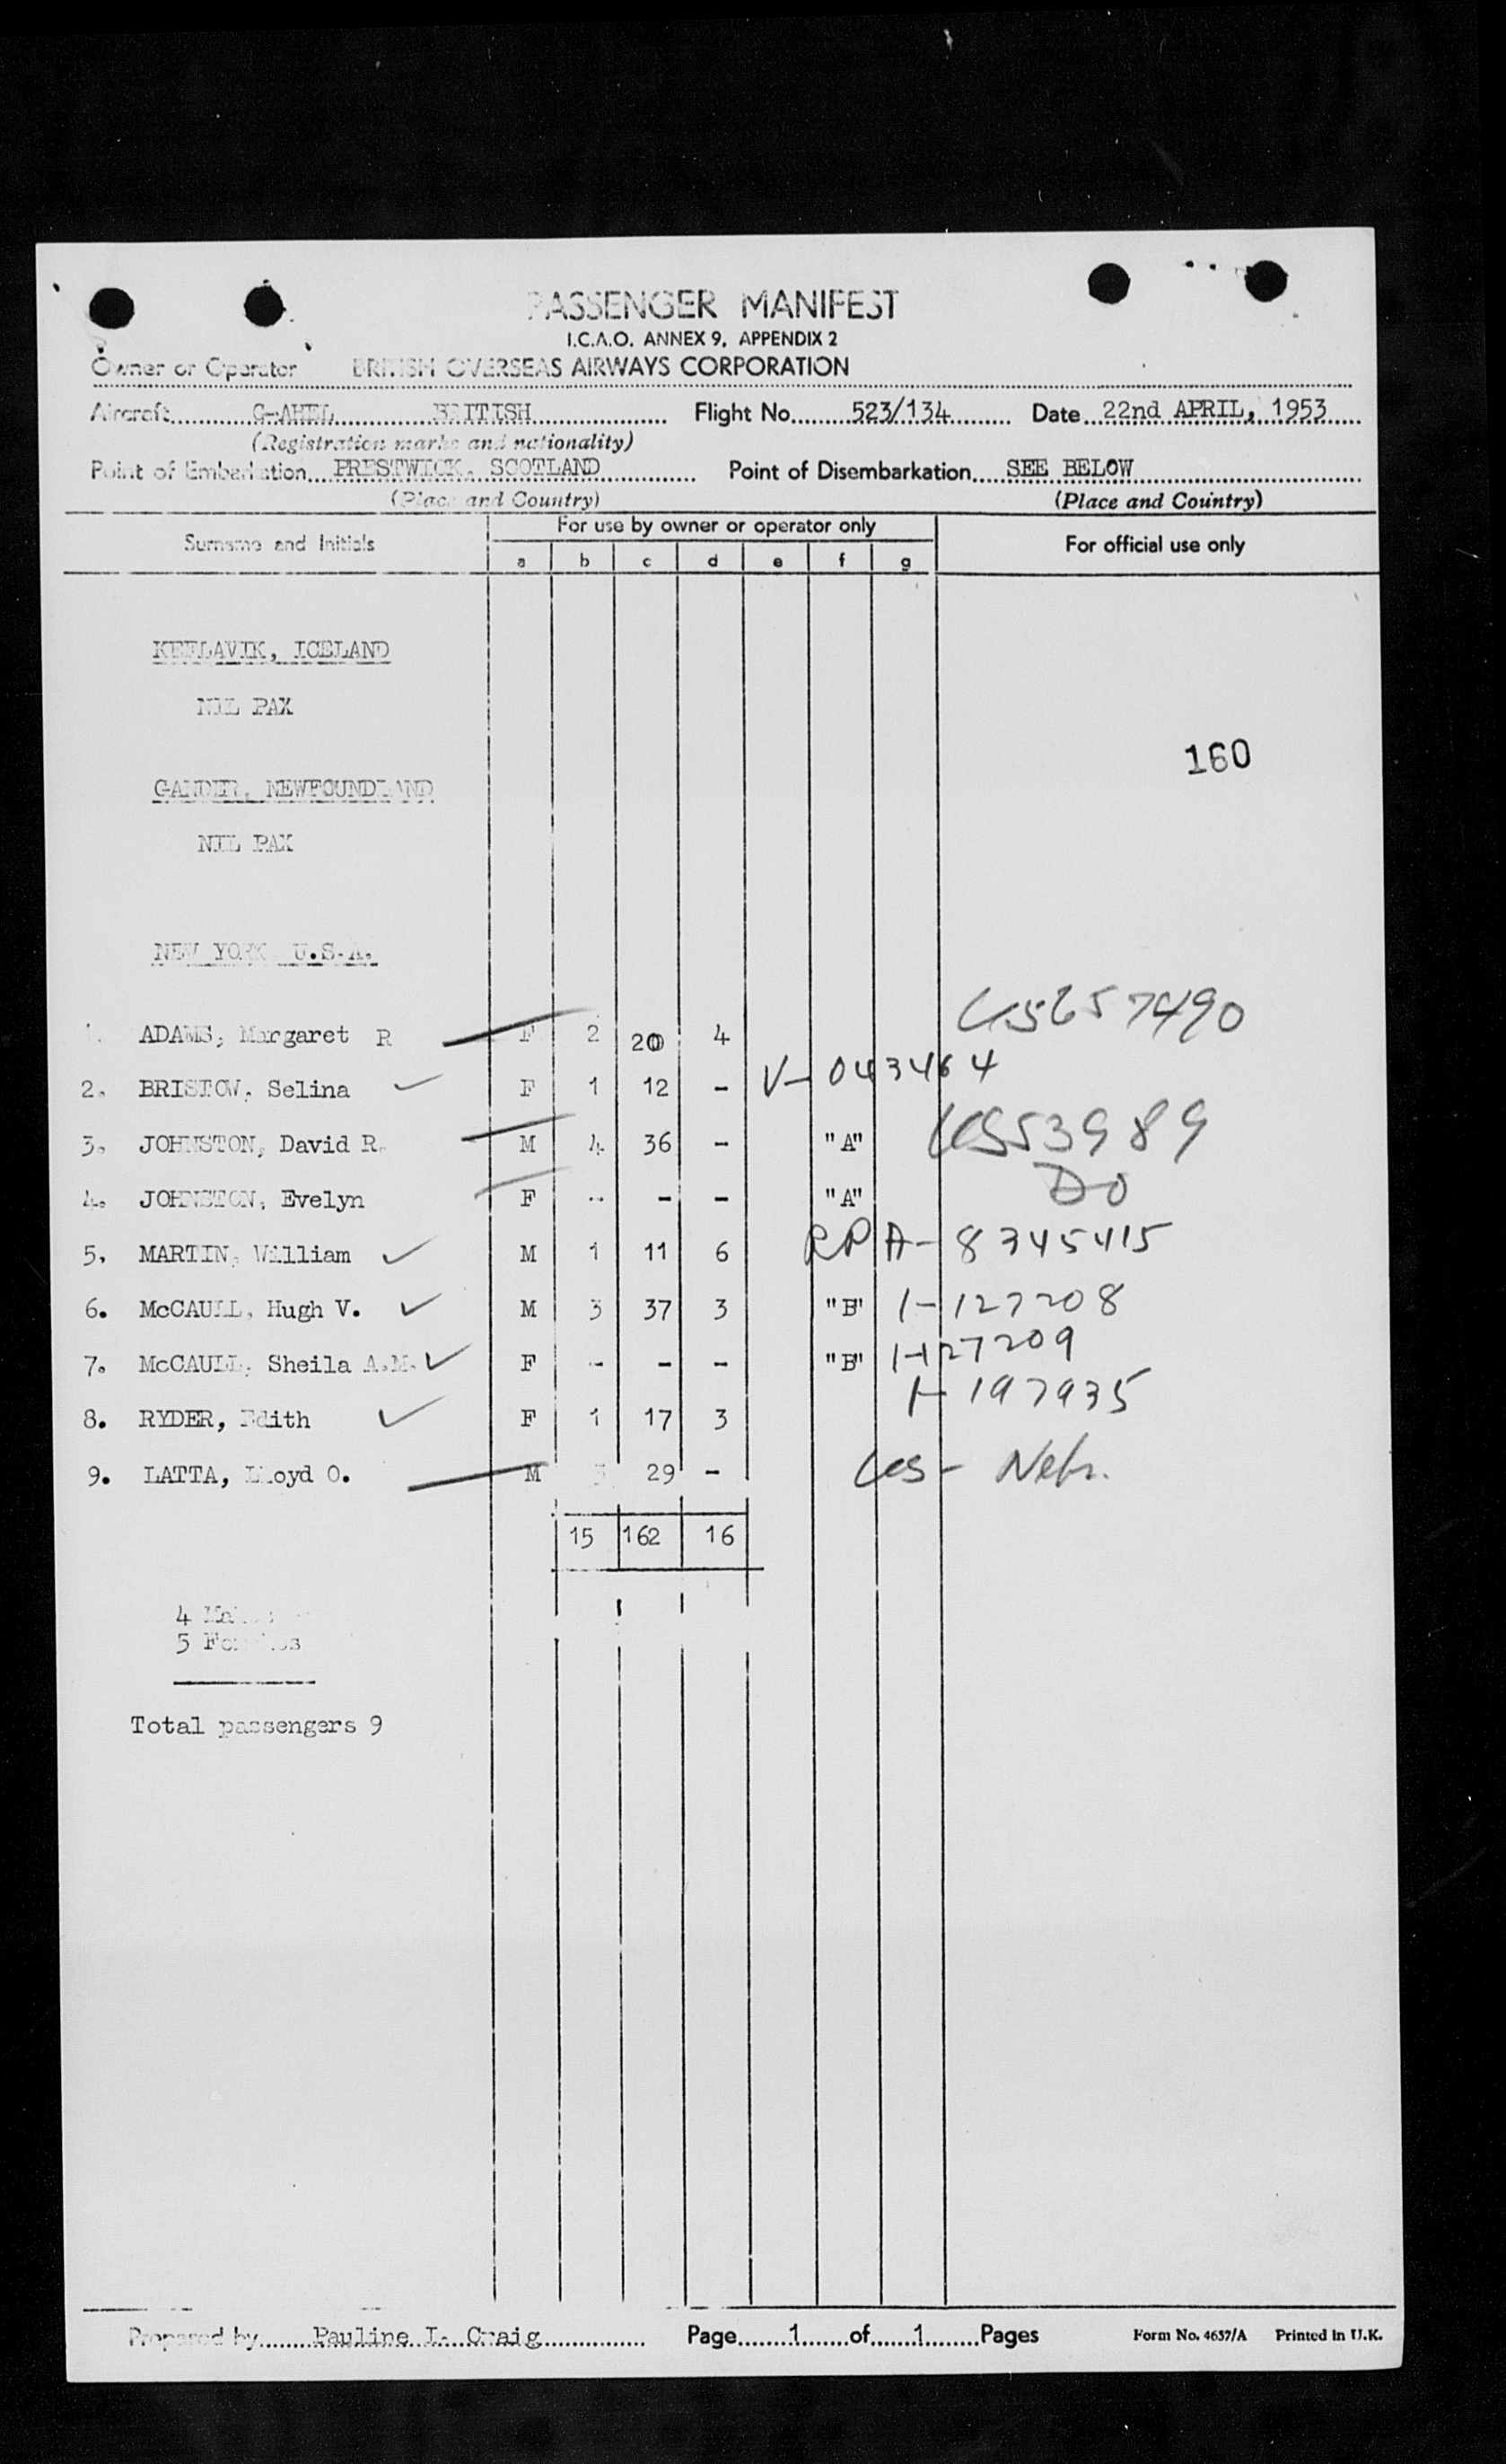 PASSENGER MANIFEST
I.C.A.O. ANNEX 9, APPENDIX 2
Owner or Operator BRITISH OVERSEAS AIRWAYS CORPORATION
Aircraft G-AHEL BRITISH Flight No. 523/134 Date 22nd APRIL, 1953
(Registration marks and nationality)
Point of Embarkation PRESTWICK, SCOTLAND Point of Disembarkation SEE BELOW
(Place and Country) (Place and Country)
Surname and Initials For use by owner or operator only For official use only
a b c d e f g
KEFLAVIK, ICELAND
NIL PAX
160
GANDER, NEWFOUNDLAND
NIL PAX
NEW YORK U.S.A.
1. ADAMS, Margaret R F 2 20 4 US657490
2. BRISTOW, Selina F 1 12 - V-043464
3. JOHNSTON, David R. M 4 36 - "A" US53989
4. JOHNSTON, Evelyn F - - - "A" DO
5. MARTIN, William M 1 11 6 RP A-8345415
6. McCAULL, Hugh V. M 3 37 3 "B" 1-127208
7. McCAULL, Sheila A.M. F - - - "B" 1-127209
8. RYDER, Edith F 1 17 3 1-197935
9. LATTA, Lloyd O. M 3 29 - US - Nebr.
15 162 16
4 Males
5 Females
Total passengers 9
Prepared by Pauline I. Craig Page 1 of 1 Pages Form No. 4637/A Printed in U.K.